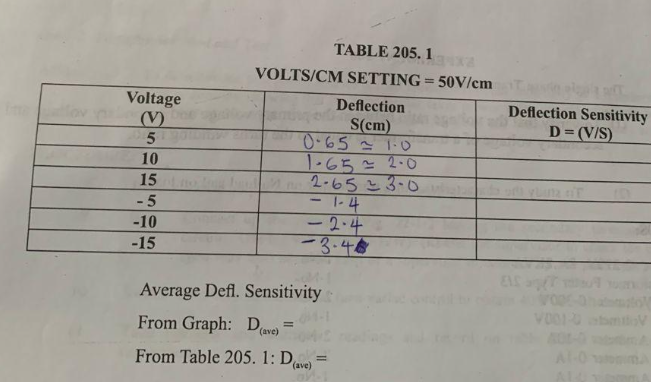 TABLE 205. 1
VOLTS/CM SETTING = 50V/cm
Voltage (V) Deflection S(cm) Deflection Sensitivity D = (V/S)
5 0.65 ≃ 1.0
10 1.65 ≃ 2.0
15 2.65 ≃ 3.0
- 5 - 1.4
-10 - 2.4
-15 - 3.4
Average Defl. Sensitivity
From Graph: D(ave) =
From Table 205. 1: D(ave) =